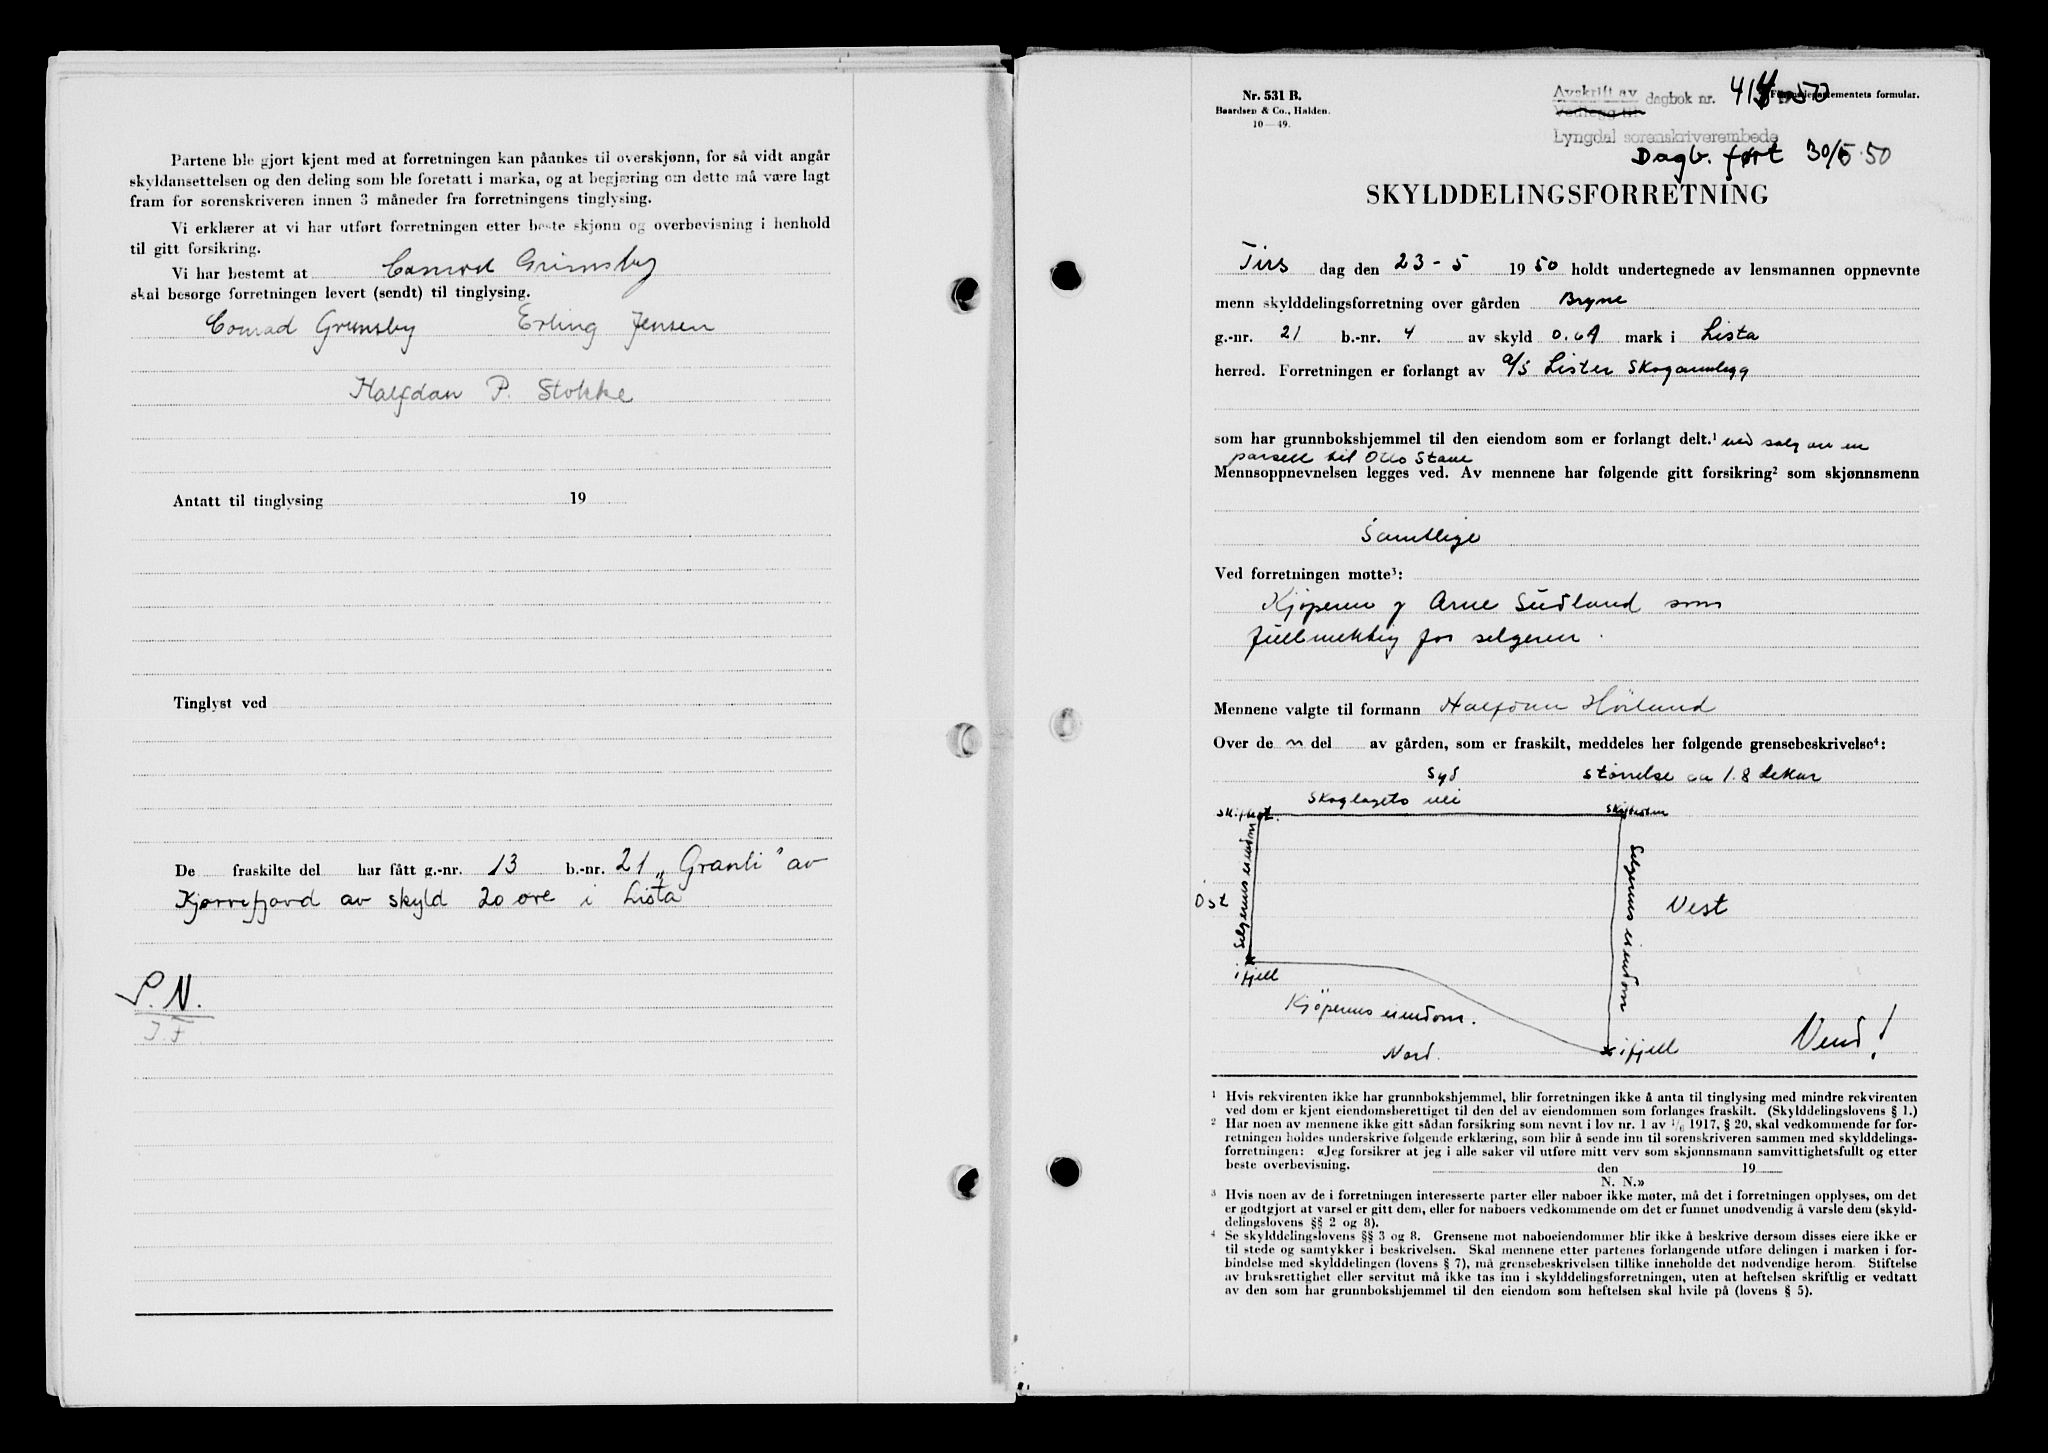 Partene ble gjort kjent med at forretningen kan påankes til overskjønn, for så vidt angår
skyldansettelsen og den deling som ble foretatt i marka, og at begjæring om dette må være lagt
fram for sorenskriveren innen 3 måneder fra forretningens tinglysing.
Vi erklærer at vi har utført forretningen etter beste skjønn og overbevisning i henhold
til gitt forsikring.
Vi har bestemt at Conrad Grimsby
skal besørge forretningen levert (sendt) til tinglysing.
Conrad Grimsby Erling Jensen
Halfdan P. Stokke
Antatt til tinglysing 19
Tinglyst ved
De fraskilte del har fått g.-nr. 13 b.-nr. 21 „Granli" av
Kjørrefjord av skyld 20 øre i Lista
S. N.
J. F.
Nr. 531 B.
Baardsen & Co., Halden.
10—49.
Avskrift av
Vedlegg til
dagbok nr. 50
Lyngdal sorenskriverembede
Dagb. ført 30/5.50
SKYLDDELINGSFORRETNING
Tirs dag den 23-5 1950 holdt undertegnede av lensmannen oppnevnte
menn skylddelingsforretning over gården Bryne
g.-nr. 21 b.-nr. 4 av skyld mark i Lista
herred. Forretningen er forlangt av a/s Lister Skoganlegg
som har grunnbokshjemmel til den eiendom som er forlangt delt.¹ ved salg av en
parsell til Otto Stave
Mennsoppnevnelsen legges ved. Av mennene har følgende gitt forsikring² som skjønnsmenn
Samtlige
Ved forretningen møtte³:
Kjøperen og Arne Sudland som
fullmektig for selgeren.
Mennene valgte til formann Halfdan Hørland
Over de n del av gården, som er fraskilt, meddeles her følgende grensebeskrivelse⁴:
Syd Størrelse ca 1.8 dekar
Skoglagets vei
Selgerens eiendom
Selgerens eiendom
Öst
Vest
i fjell
Kjöperens eiendom.
Nord.
i fjell
Vend!
¹ Hvis rekvirenten ikke har grunnbokshjemmel, blir forretningen ikke å anta til tinglysing med mindre rekvirenten
ved dom er kjent eiendomsberettiget til den del av eiendommen som forlanges fraskilt. (Skylddelingslovens § 1.)
² Har noen av mennene ikke gitt sådan forsikring som nevnt i lov nr. 1 av ¹/₆ 1917, § 20, skal vedkommende før for-
retningen holdes underskrive følgende erklæring, som blir å sende inn til sorenskriveren sammen med skylddelings-
forretningen: «Jeg forsikrer at jeg i alle saker vil utføre mitt verv som skjønnsmann samvittighetsfullt og etter
beste overbevisning. den 19
N. N.»
³ Hvis noen av de i forretningen interesserte parter eller naboer ikke møter, må det i forretningen opplyses, om det
er godtgjort at varsel er gitt dem, eller for naboers vedkommende om det er funnet unødvendig å varsle dem (skyld-
delingslovens §§ 2 og 8).
⁴ Se skylddelingslovens §§ 3 og 8. Grensene mot naboeiendommer blir ikke å beskrive dersom disses eiere ikke er
til stede og samtykker i beskrivelsen. Skal mennene etter partenes forlangende utføre delingen i marken i for-
bindelse med skylddelingen (lovens § 7), må grensebeskrivelsen tillike inneholde det nødvendige herom. Stiftelse
av bruksrettighet eller servitut må ikke tas inn i skylddelingsforretningen, uten at heftelsen skriftlig er vedtatt
av den som har grunnbokshjemmel til den eiendom som heftelsen skal hvile på (lovens § 5).